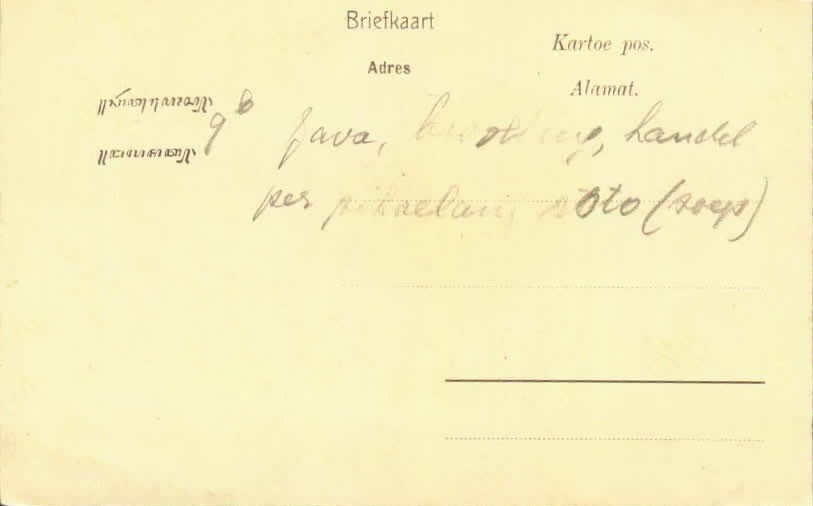 Briefkaart
Kartoe pos.
Adres
Alamat.
9b Java, bevolking, handel
per pikoelan, soto (soep)